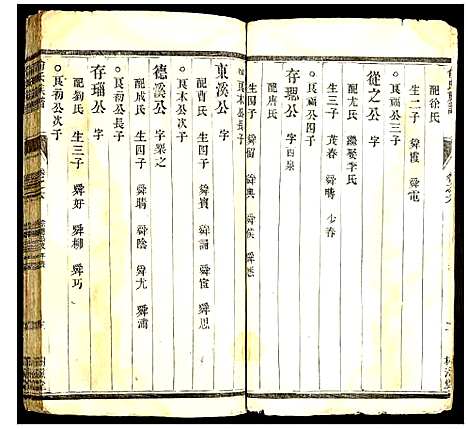 配徐氏
生二子 舜霞 舜電
○良福公三子
從之公 字
配尤氏 繼娶李氏
生三子 茂春 舜時 少春
○良福公四子
存璁公 字西泉
配唐氏
生四子 舜留 舜典 舜侯 舜愚
良木公長子
東溪公 字
配曹氏 生四子 舜賓 舜誦 舜宦 舜思
○良木公次子
德溪公 字榮之
配成氏 生四子 舜晴 舜陰 舜尤 舜甫
○良初公長子
存瑙公 字
配劉氏 生三子 舜好 舜柳 舜巧
○良初公次子